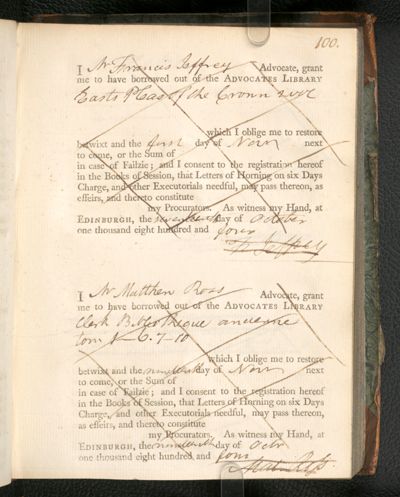 100.
I Mr Francis Jeffrey Advocate, grant
me to have borrowed out of the ADVOCATES LIBRARY
Easts Pleas of the Crown 2 vol
which I oblige me to restore
betwixt and the first day of Novr next
to come, or the Sum of
in case of Failzie; and I consent to the registration hereof
in the Books of Session, that Letters of Horning on six Days
Charge, and other Executorials needful, may pass thereon, as
effeirs, and thereto constitute
my Procurators. As witness my Hand, at
EDINBURGH, the seventeenth day of October
one thousand eight hundred and four
F. Jeffrey
I Mr Matthew Ross Advocate, grant
me to have borrowed out of the ADVOCATES LIBRARY
Clerk Bibliotheque ancienne
tom 6. 7. 10
which I oblige me to restore
betwixt and the nineteenth day of Novr next
to come, or the Sum of
in case of Failzie; and I consent to the registration hereof
in the Books of Session, that Letters of Horning on six Days
Charge, and other Executorials needful, may pass thereon,
as effeirs, and thereto constitute
my Procurators. As witness my Hand, at
EDINBURGH, the nineteenth day of Octr
one thousand eight hundred and four
Matw Ross